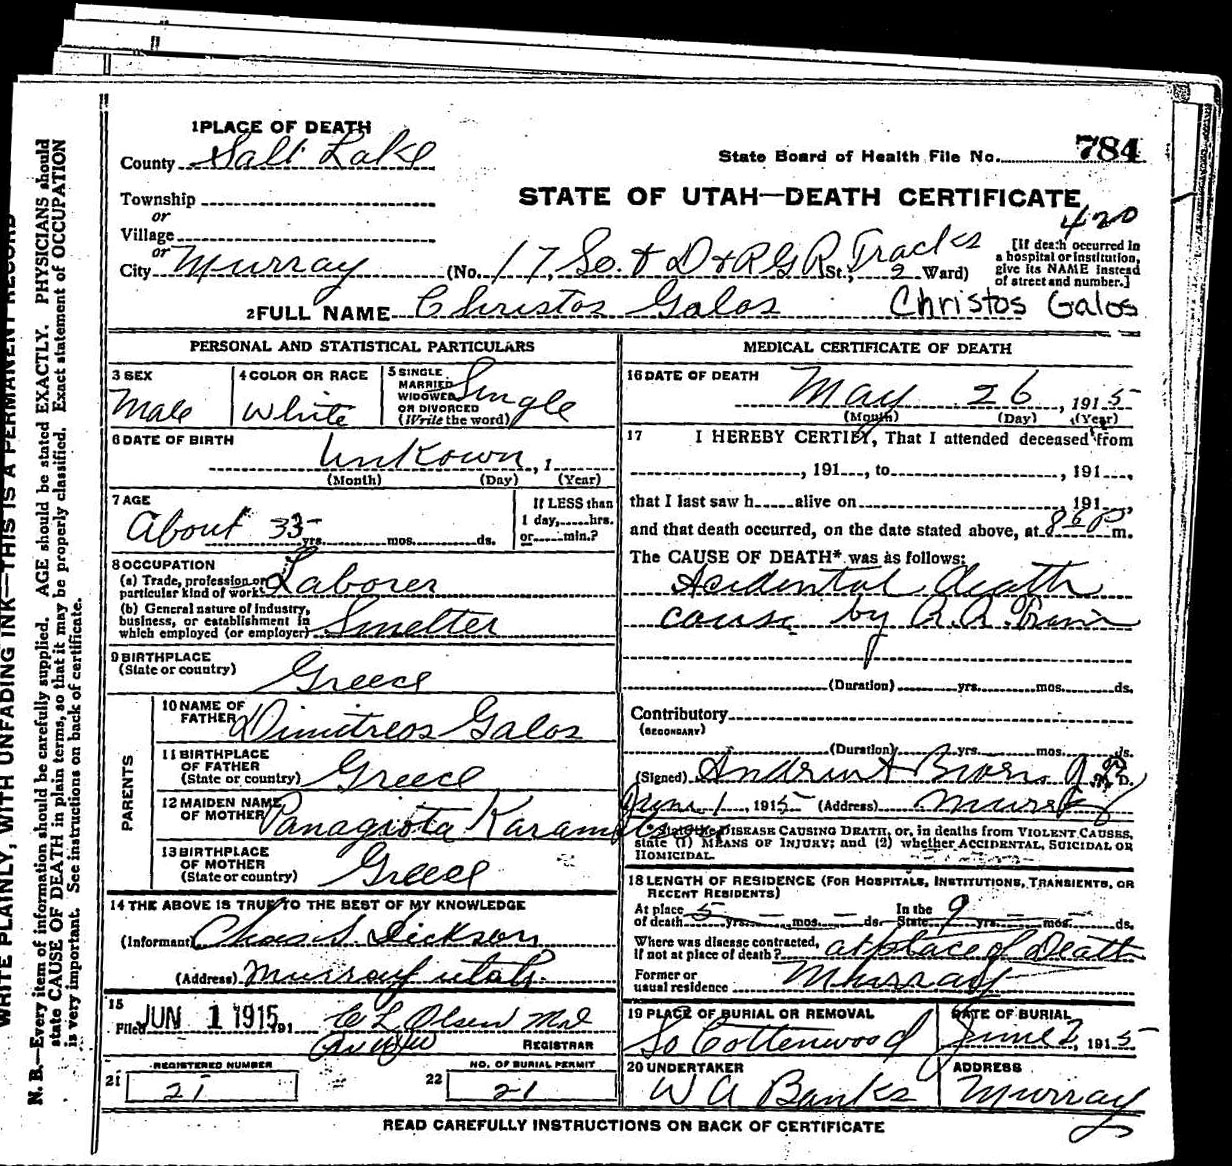 1 PLACE OF DEATH
County Salt Lake
State Board of Health File No. 784
Township
or
Village
or
STATE OF UTAH—DEATH CERTIFICATE
420
City Murray (No. 17 So. & D & R G R Tracks St., 2 Ward)
[If death occurred in a hospital or institution, give its NAME instead of street and number.]
2 FULL NAME Christos Galos Christos Galos
PERSONAL AND STATISTICAL PARTICULARS
3 SEX Male
4 COLOR OR RACE White
5 SINGLE, MARRIED, WIDOWED, OR DIVORCED (Write the word) Single
6 DATE OF BIRTH Unkown, 1
(Month) (Day) (Year)
7 AGE About 35 yrs. mos. ds.
If LESS than 1 day, hrs. or min.?
8 OCCUPATION
(a) Trade, profession or particular kind of work Laborer
(b) General nature of industry, business, or establishment in which employed (or employer) Smelter
9 BIRTHPLACE (State or country) Greece
PARENTS
10 NAME OF FATHER Dimitreos Galos
11 BIRTHPLACE OF FATHER (State or country) Greece
12 MAIDEN NAME OF MOTHER Panagiota
13 BIRTHPLACE OF MOTHER (State or country) Greece
14 THE ABOVE IS TRUE TO THE BEST OF MY KNOWLEDGE
(Informant) Chas S. Dickson
(Address) Murray Utah.
15 Filed JUN 1 1915, 191 C L Olsen
REGISTRAR
21 REGISTERED NUMBER 21
22 NO. OF BURIAL PERMIT 21
MEDICAL CERTIFICATE OF DEATH
16 DATE OF DEATH May 26, 1915
(Month) (Day) (Year)
17 I HEREBY CERTIFY, That I attended deceased from
, 191 , to , 191 ,
that I last saw h alive on , 191 ,
and that death occurred, on the date stated above, at m.
The CAUSE OF DEATH* was as follows:
Acidental death
cause by R.R. Train
(Duration) yrs. mos. ds.
Contributory
(SECONDARY)
(Duration) yrs. mos. ds.
(Signed) Andrew
June 1, 1915 (Address) Murray
*State the DISEASE CAUSING DEATH, or, in deaths from VIOLENT CAUSES, state (1) MEANS OF INJURY; and (2) whether ACCIDENTAL, SUICIDAL OR HOMICIDAL.
18 LENGTH OF RESIDENCE (FOR HOSPITALS, INSTITUTIONS, TRANSIENTS, OR RECENT RESIDENTS)
At place of death 5 yrs. mos. ds. In the State 9 yrs. mos. ds.
Where was disease contracted, if not at place of death? at place of Death
Former or usual residence Murray
19 PLACE OF BURIAL OR REMOVAL So Cottenwood
DATE OF BURIAL June 2, 1915
20 UNDERTAKER W A Banks
ADDRESS Murray
READ CAREFULLY INSTRUCTIONS ON BACK OF CERTIFICATE
WRITE PLAINLY, WITH UNFADING INK—THIS IS A PERMANENT RECORD
N. B.—Every item of information should be carefully supplied. AGE should be stated EXACTLY. PHYSICIANS should
state CAUSE OF DEATH in plain terms, so that it may be properly classified. Exact statement of OCCUPATION
is very important. See instructions on back of certificate.